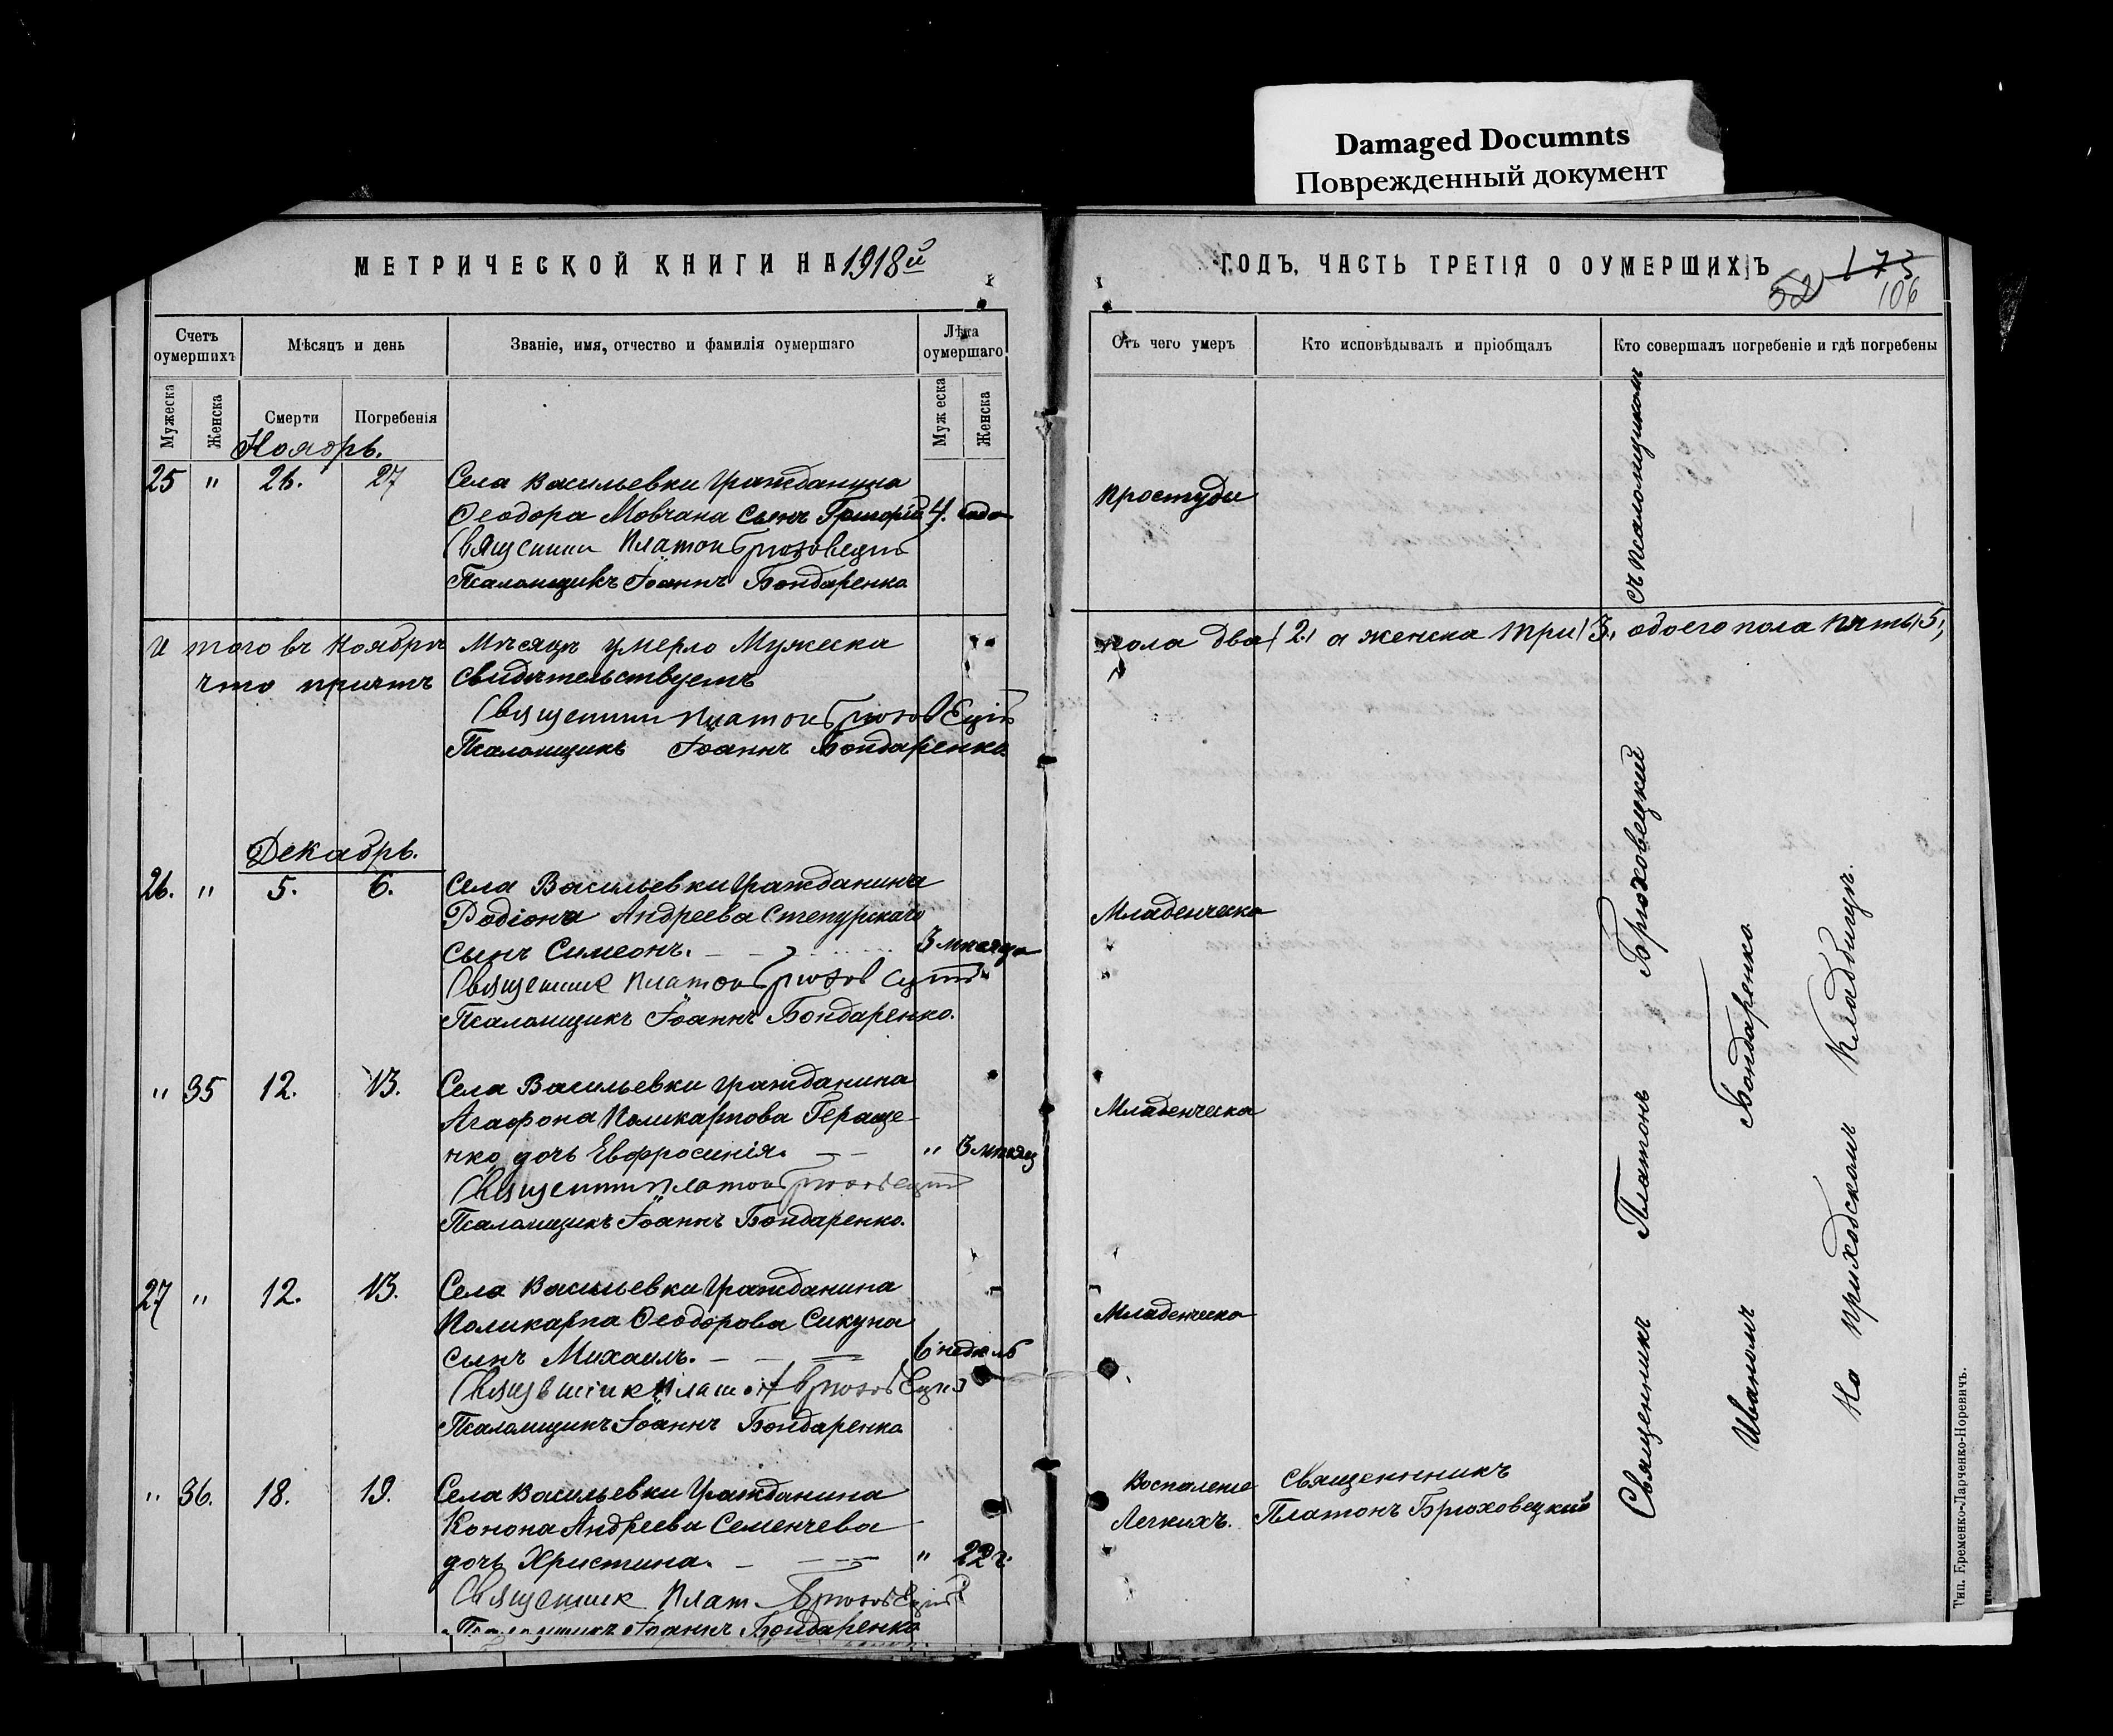 Damaged Documnts
Поврежденный документ
МЕТРИЧЕСКОЙ КНИГИ НА 1918й
ГОДЪ, ЧАСТЬ ТРЕТІЯ О ОУМЕРШИХЪ
52 173
106
Счетъ оумершихъ
Мѣсяцъ и день
Званіе, имя, отчество и фамилія оумершаго
Лѣта оумершаго
Отъ чего умеръ
Кто исповѣдывалъ и пріобщалъ
Кто совершалъ погребеніе и гдѣ погребены
Мужеска
Женска
Смерти
Погребенія
Мужеска
Женска
Ноябрь.
25 " 26. 27 Села Васильевки Гражданина
Ѳеодора Мовчана сынъ Григорій 4. года
Простуды
Священник Платон Брюховецкій
Псаломщикъ Іоаннъ Бондаренко
И того въ Ноябрѣ Мѣсяцѣ умерло Мужеска пола два (2) а женска три (3), обоего пола пять (5),
что причтъ свидѣтельствуемъ
Священник Платон Брюховецкій
Псаломщикъ Іоаннъ Бондаренко
Декабрь.
26. " 5. 6. Села Васильевки Гражданина
Родіона Андреева Степурскаго
сынъ Симеонъ. 3 мѣсяца
Младенческа
Священник Платон Брюховецкій
Псаломщикъ Іоаннъ Бондаренко.
" 35 12. 13. Села Васильевки Гражданина
Агафона Поликарпова Гераще-
нко дочь Евфросинія. " 3 мѣсяц
Младенческа
Священник Платон Брюховецкій
Псаломщикъ Іоаннъ Бондаренко.
27 " 12. 13. Села Васильевки Гражданина
Поликарпа Ѳеодорова Сикуна
сынъ Михаилъ. 6 недѣль
Младенческа
Священник Платон Брюховецкій
Псаломщикъ Іоаннъ Бондаренко
" 36. 18. 19. Села Васильевки Гражданина
Конона Андреева Семенчева
дочь Христина. " 22 г.
Воспаленіе
Легкихъ.
Священникъ
Платонъ Брюховецкий
Священник Плат. Брюховецкій
Псаломщикъ Іоаннъ Бондаренко
Священникъ Платонъ Брюховецкий съ псаломщикомъ
Иваномъ Бондаренко
На приходскомъ Кладбищѣ.
Тип. Еременко-Ларченко-Норевичъ.